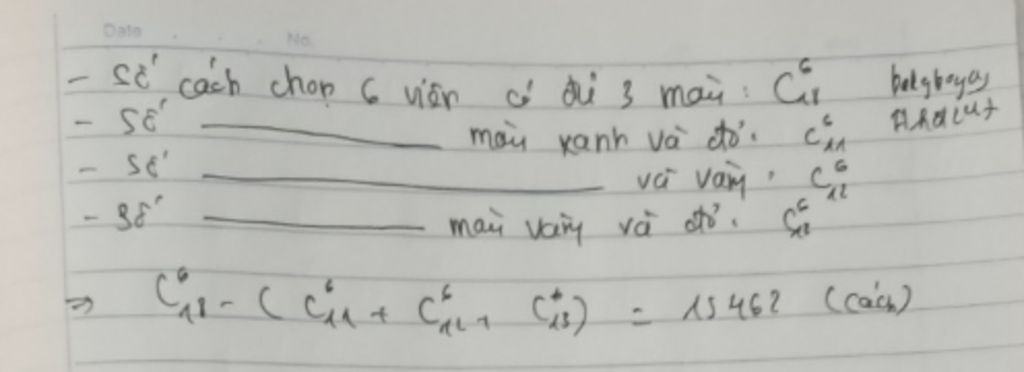 Date No.
- Số cách chọn 6 viên có đủ 3 màu: C⁶₁₈
- Số ——— màu xanh và đỏ. C⁶₁₁
- Số ——— và vàng. C⁶₁₂
- Số ——— màu vàng và đỏ. C⁶₁₃
⇒ C⁶₁₈ - (C⁶₁₁ + C⁶₁₂ + C⁶₁₃) = 15462 (cách)